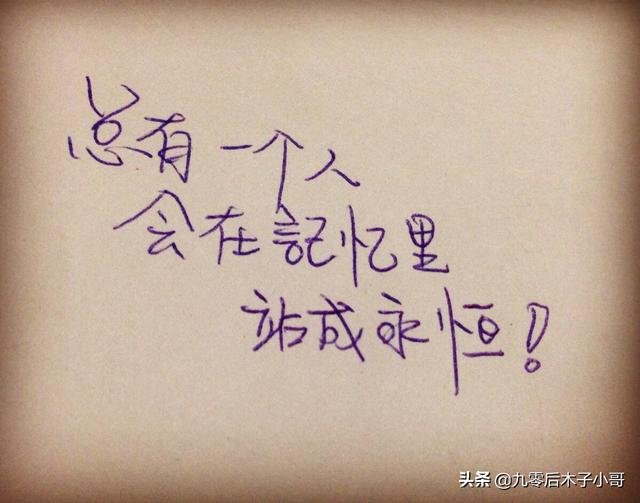 总有一个人
会在記忆里
站成永恒!
头条 @九零后木子小哥